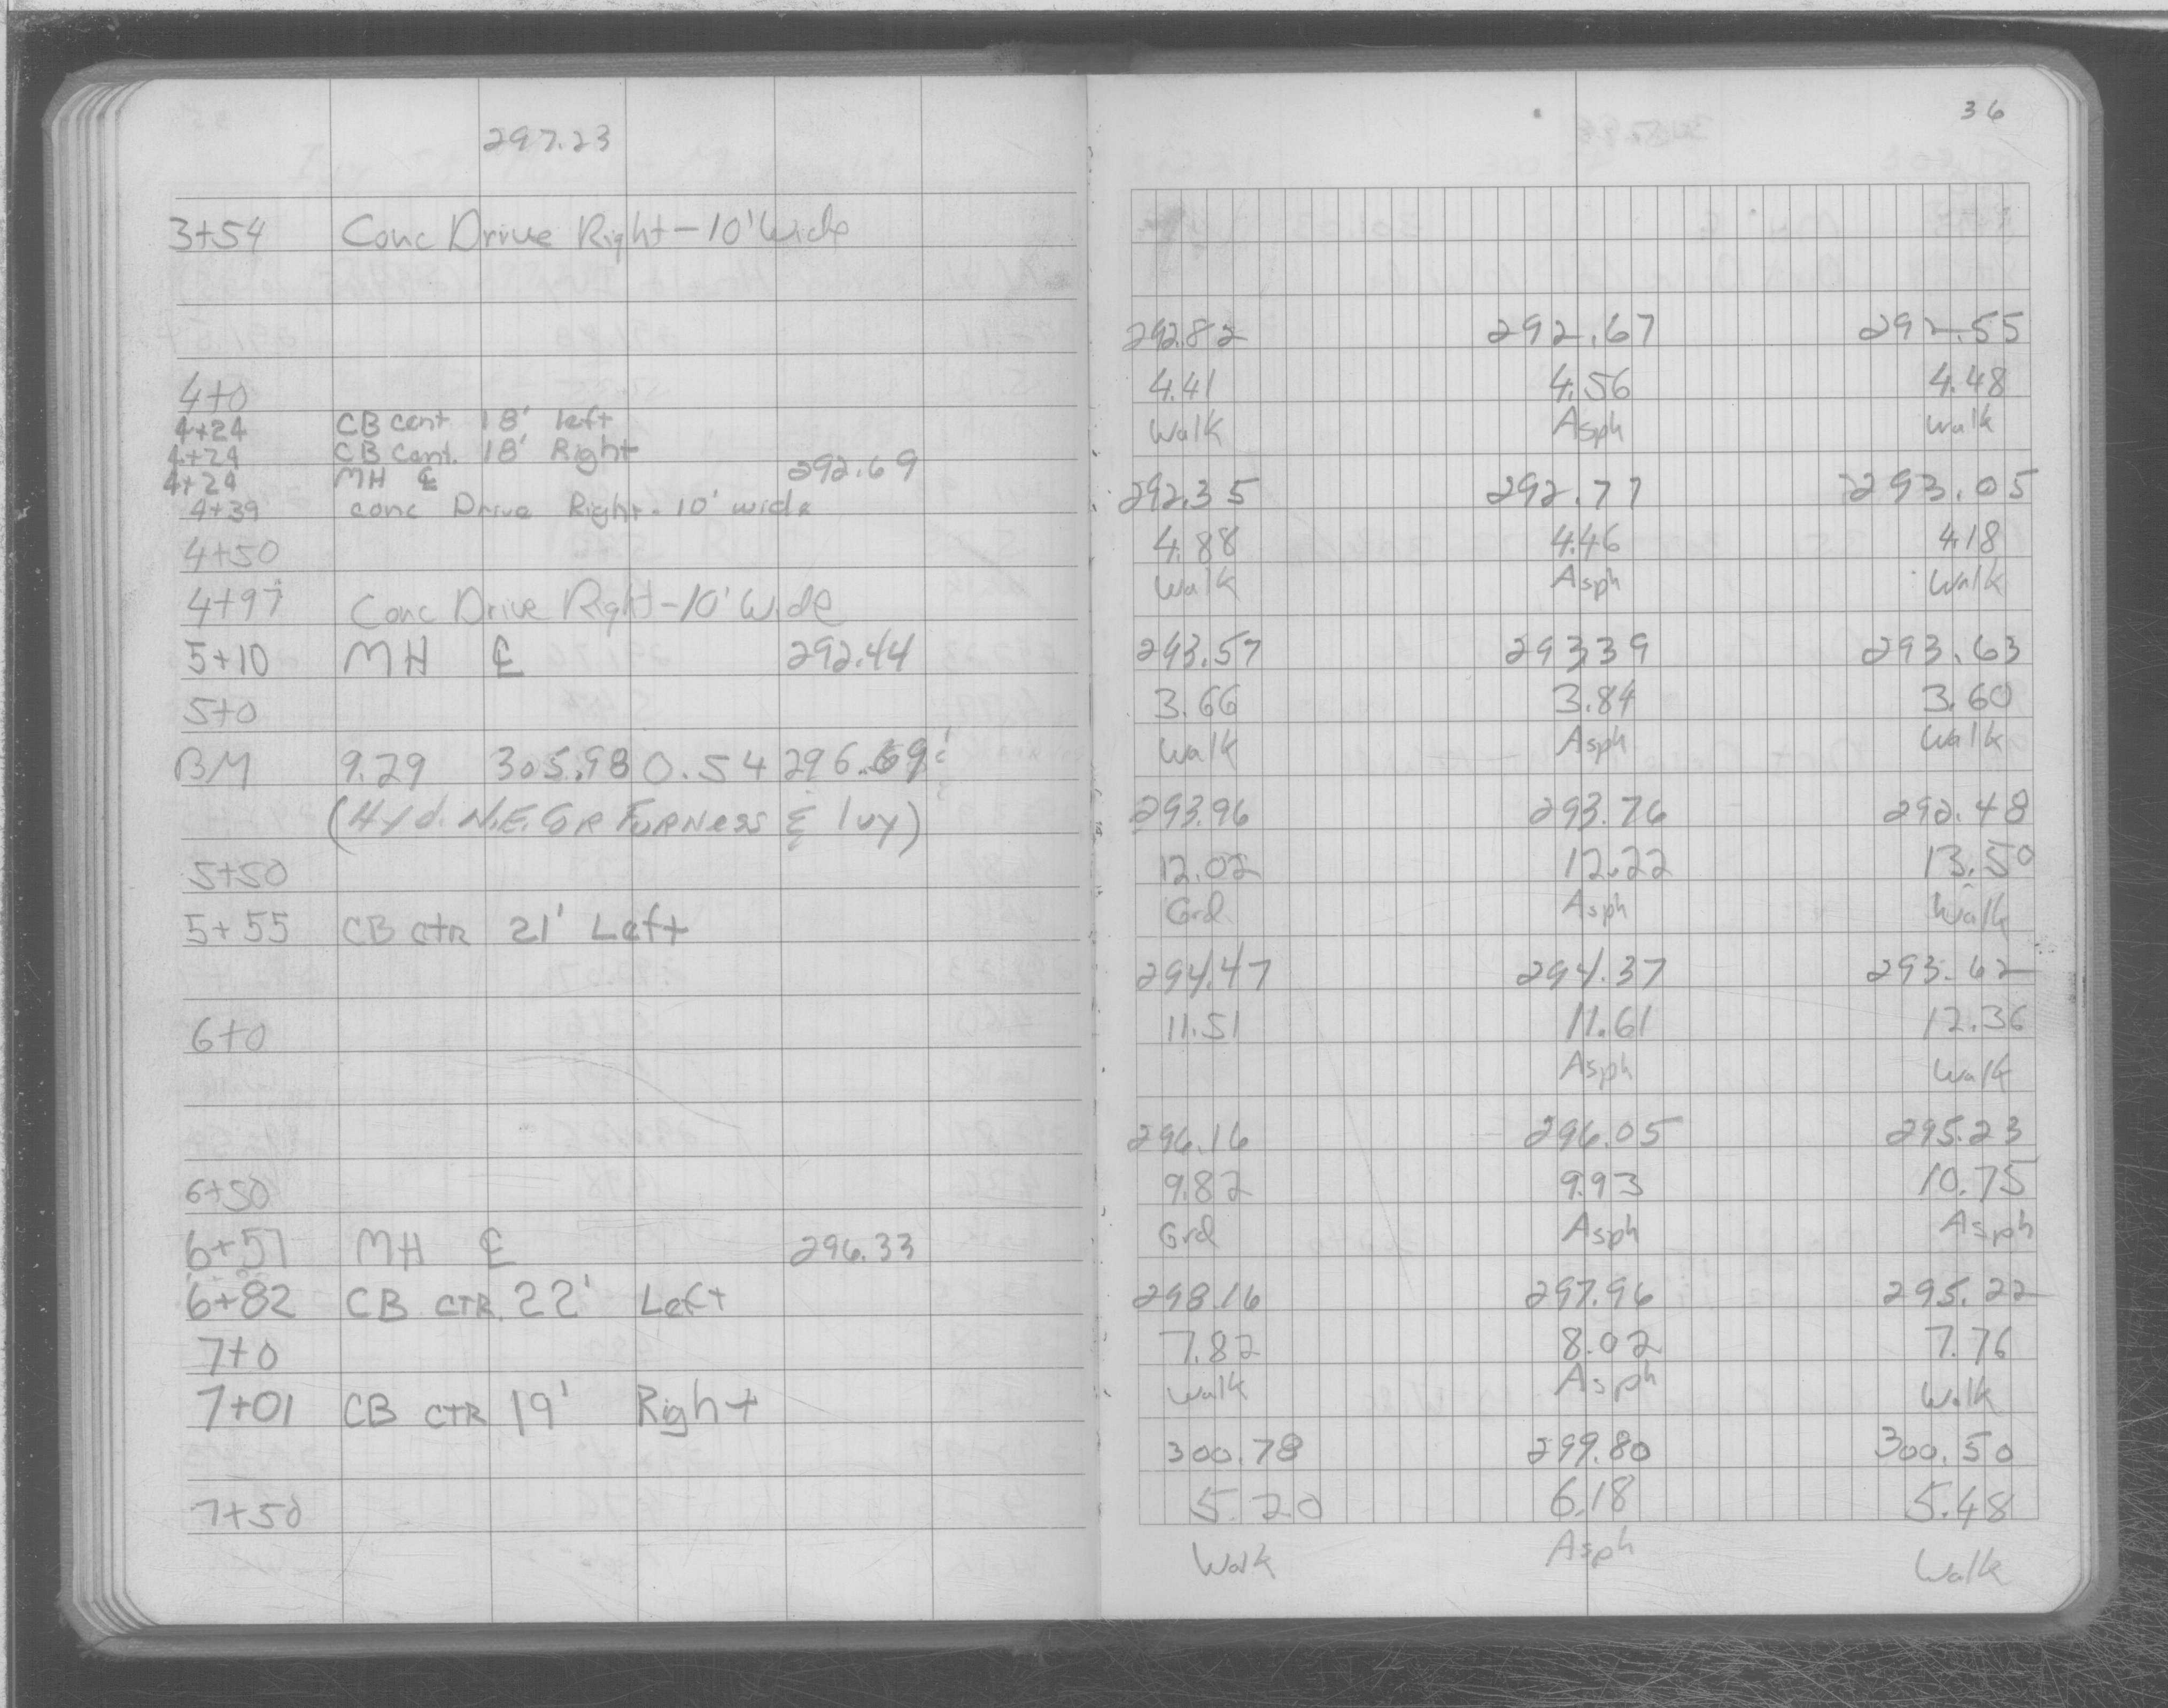 297.23
3+54 Conc Drive Right - 10' Wide
4+0
4+24 CB cent 18' left
4+24 CB Cent. 18' Right
4+24 MH ℄ 292.69
4+39 conc Drive Right - 10' wide
4+50
4+97 Conc Drive Right - 10' Wide
5+10 MH ℄ 292.44
5+0
BM 9.29 305.98 0.54 296.69
(Hyd. N.E. COR FURNESS & Ivy)
5+50
5+55 CB CTR 21' Left
6+0
6+50
6+51 MH ℄ 296.33
6+82 CB CTR. 22' Left
7+0
7+01 CB CTR 19' Right
7+50
36
292.82 292.67 292.55
4.41 4.56 4.48
Walk Asph Walk
292.35 292.77 293.05
4.88 4.46 4.18
Walk Asph Walk
293.57 293.39 293.63
3.66 3.84 3.60
Walk Asph Walk
293.96 293.76 292.48
12.02 12.22 13.50
Grd Asph Walk
294.47 294.37 293.62
11.51 11.61 12.36
Asph Walk
296.16 296.05 295.23
9.82 9.93 10.75
Grd Asph Asph
298.16 297.96 295.22
7.82 8.02 7.76
Walk Asph Walk
300.78 299.80 300.50
5.20 6.18 5.48
Walk Asph Walk